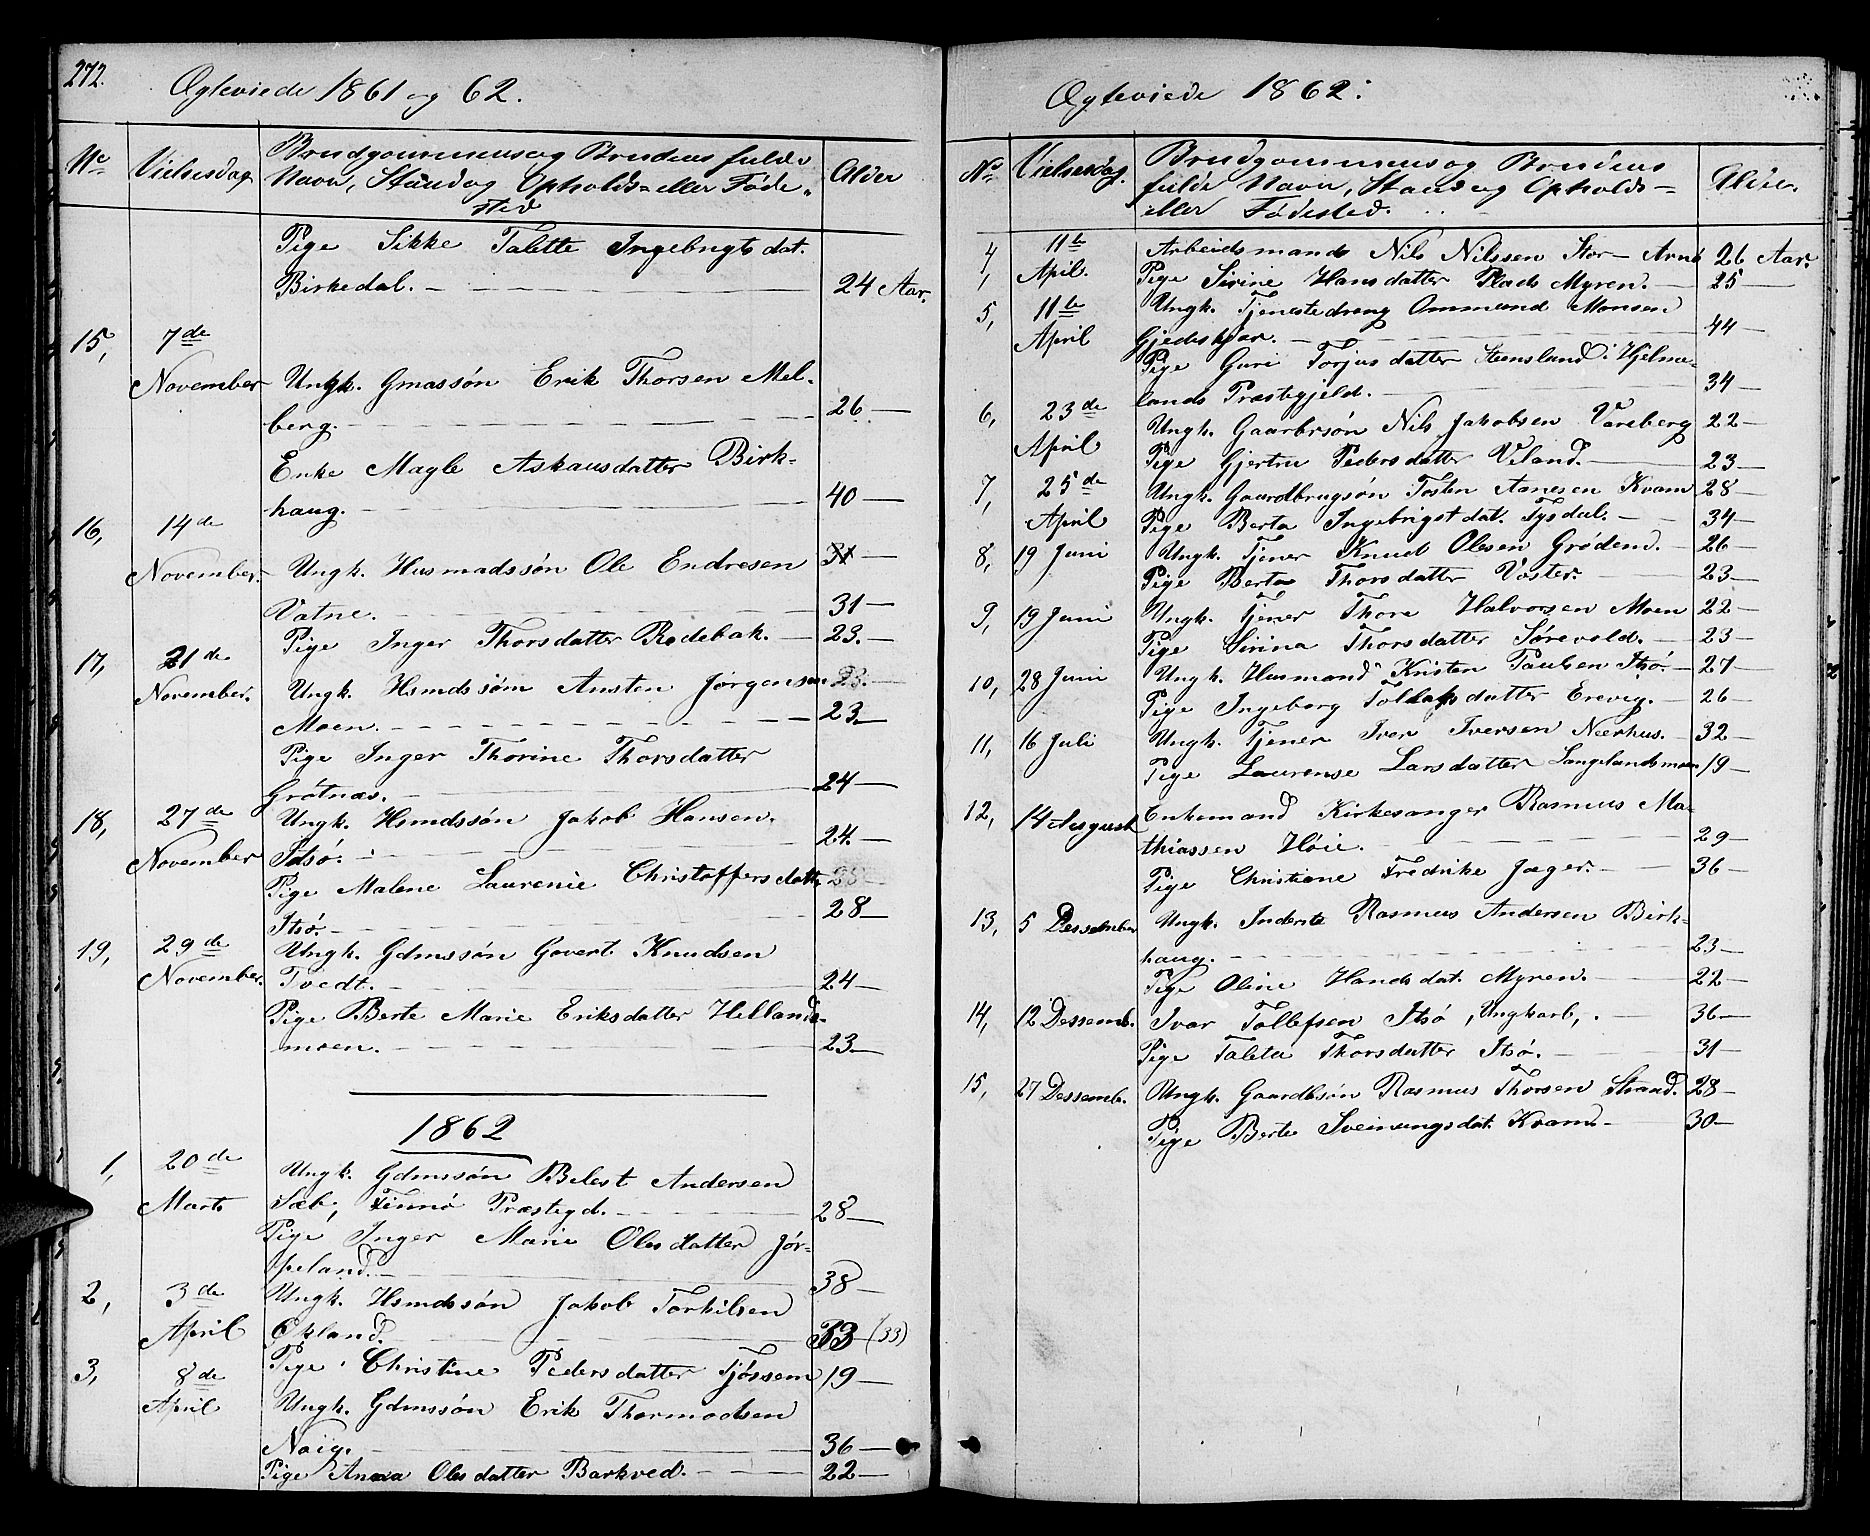 272.
Ægteviede 1861 og 62.
No Vielsesdag Brudgommens og Brudens fulde Alder
Navn, Stand og Opholds- eller Føde-
sted
Pige Sikke Talette Ingebrigtsdat.
Birkedal. 24 Aar.
15, 7de
November Ungk. Gmassøn Erik Thorsen Mel-
berg. 26
Enke Magle Askausdatter Birk-
haug. 40
16, 14de
November. Ungk. Husmadssøn Ole Endresen 31
Vatne. 31
Pige Inger Thorsdatter Rødebak. 23.
17, 21de
November. Ungk. Hsmdssøn Ansten Jørgensen 23.
Moen. 23
Pige Inger Thorine Thorsdatter
Grøtnæs. 24
18, 27de Ungk. Hsmdssøn Jakob Hansen.
November Idsø. 24.
Pige Malene Laurenie Christoffersdatt. 28
Itsø. 28
19, 29de Ungk. Gdmssøn Govert Knudsen
November. Tvedt. 24
Pige Berte Marie Eriksdatter Hellands-
moen. 23
1862
1, 20de Ungk. Gdmssøn Belest Andersen
Marts Sæb, Finnø Præstegd. 28
Pige Inger Marie Olesdatter Jør-
peland. 38
2, 3de Ungk. Hsmdssøn Jakob Torkilsen
April Økland. 33 (33)
Pige Christine Pedersdatter Tjøssem 19
3, 8de
April Ungk. Gdmssøn Erik Thormodsen
Naig. 36
Pige Anna Olesdatter Barkved. 22
Ægteviede 1862:
No. Vielsesdag. Brudgommens og Brudens
fulde Navn, Stand og Opholds- Alder.
eller Fødested.
4, 11te Arbeidsmand Nils Nilssen Stor- Arnø 26 Aar.
April. Pige Sirine Hansdatter Plads Myren. 25
5, 11te Ungk. Tjenestedreng Ommund Monsen
April Gjedskjær. 44
Pige Guri Torjusdatter Steensland i Hjelme-
lands Præstegjeld. 34
6, 23de Ungk. Gaarbrsøn Nils Jakobsen Vareberg 22
April Pige Gjertru Pedersdatter Veland. 23
7, 25de Ungk. Gaardbrugsøn Tosten Aanesen Kvam 28
April Pige Berta Ingebrigstdat. Tysdal. 34
8, 19 Juni Ungk. Tjener Knud Olesen Grødem. 26
Pige Berta Thorsdatter Voster. 23
9, 19 Juni Ungk. Tjener Thore Halvorsen Moen 22
Pige Sirina Thorsdatter Sørevold. 23
10, 28 Juni Ungk. Husmand Kristen Paulsen Itsø. 27
Pige Ingeborg Tollefsdatter Erevig. 26
11, 16 Juli Ungk. Tjener Iver Iversen Neerhus. 32
Pige Laurense Larsdatter Langelandsmoen 19
12, 14 August Enkemand Kirkesanger Rasmus Ma-
thiassen Høie. 29
Pige Christiane Fredrike Jæger. 36
13, 5 Dessember Ungk. Inderste Rasmus Andersen Birk-
haug. 23
Pige Oline Handsdat. Myren. 22
14, 12 Dessemb. Ivar Tollefsen Itsø, Ungkarl, 36
Pige Talita Thorsdatter Itsø. 31
15, 27 Dessemb. Ungk. Gaardbsøn Rasmus Thorsen Strand. 28
Pige Berte Sveinungsdat. Kvam. 30